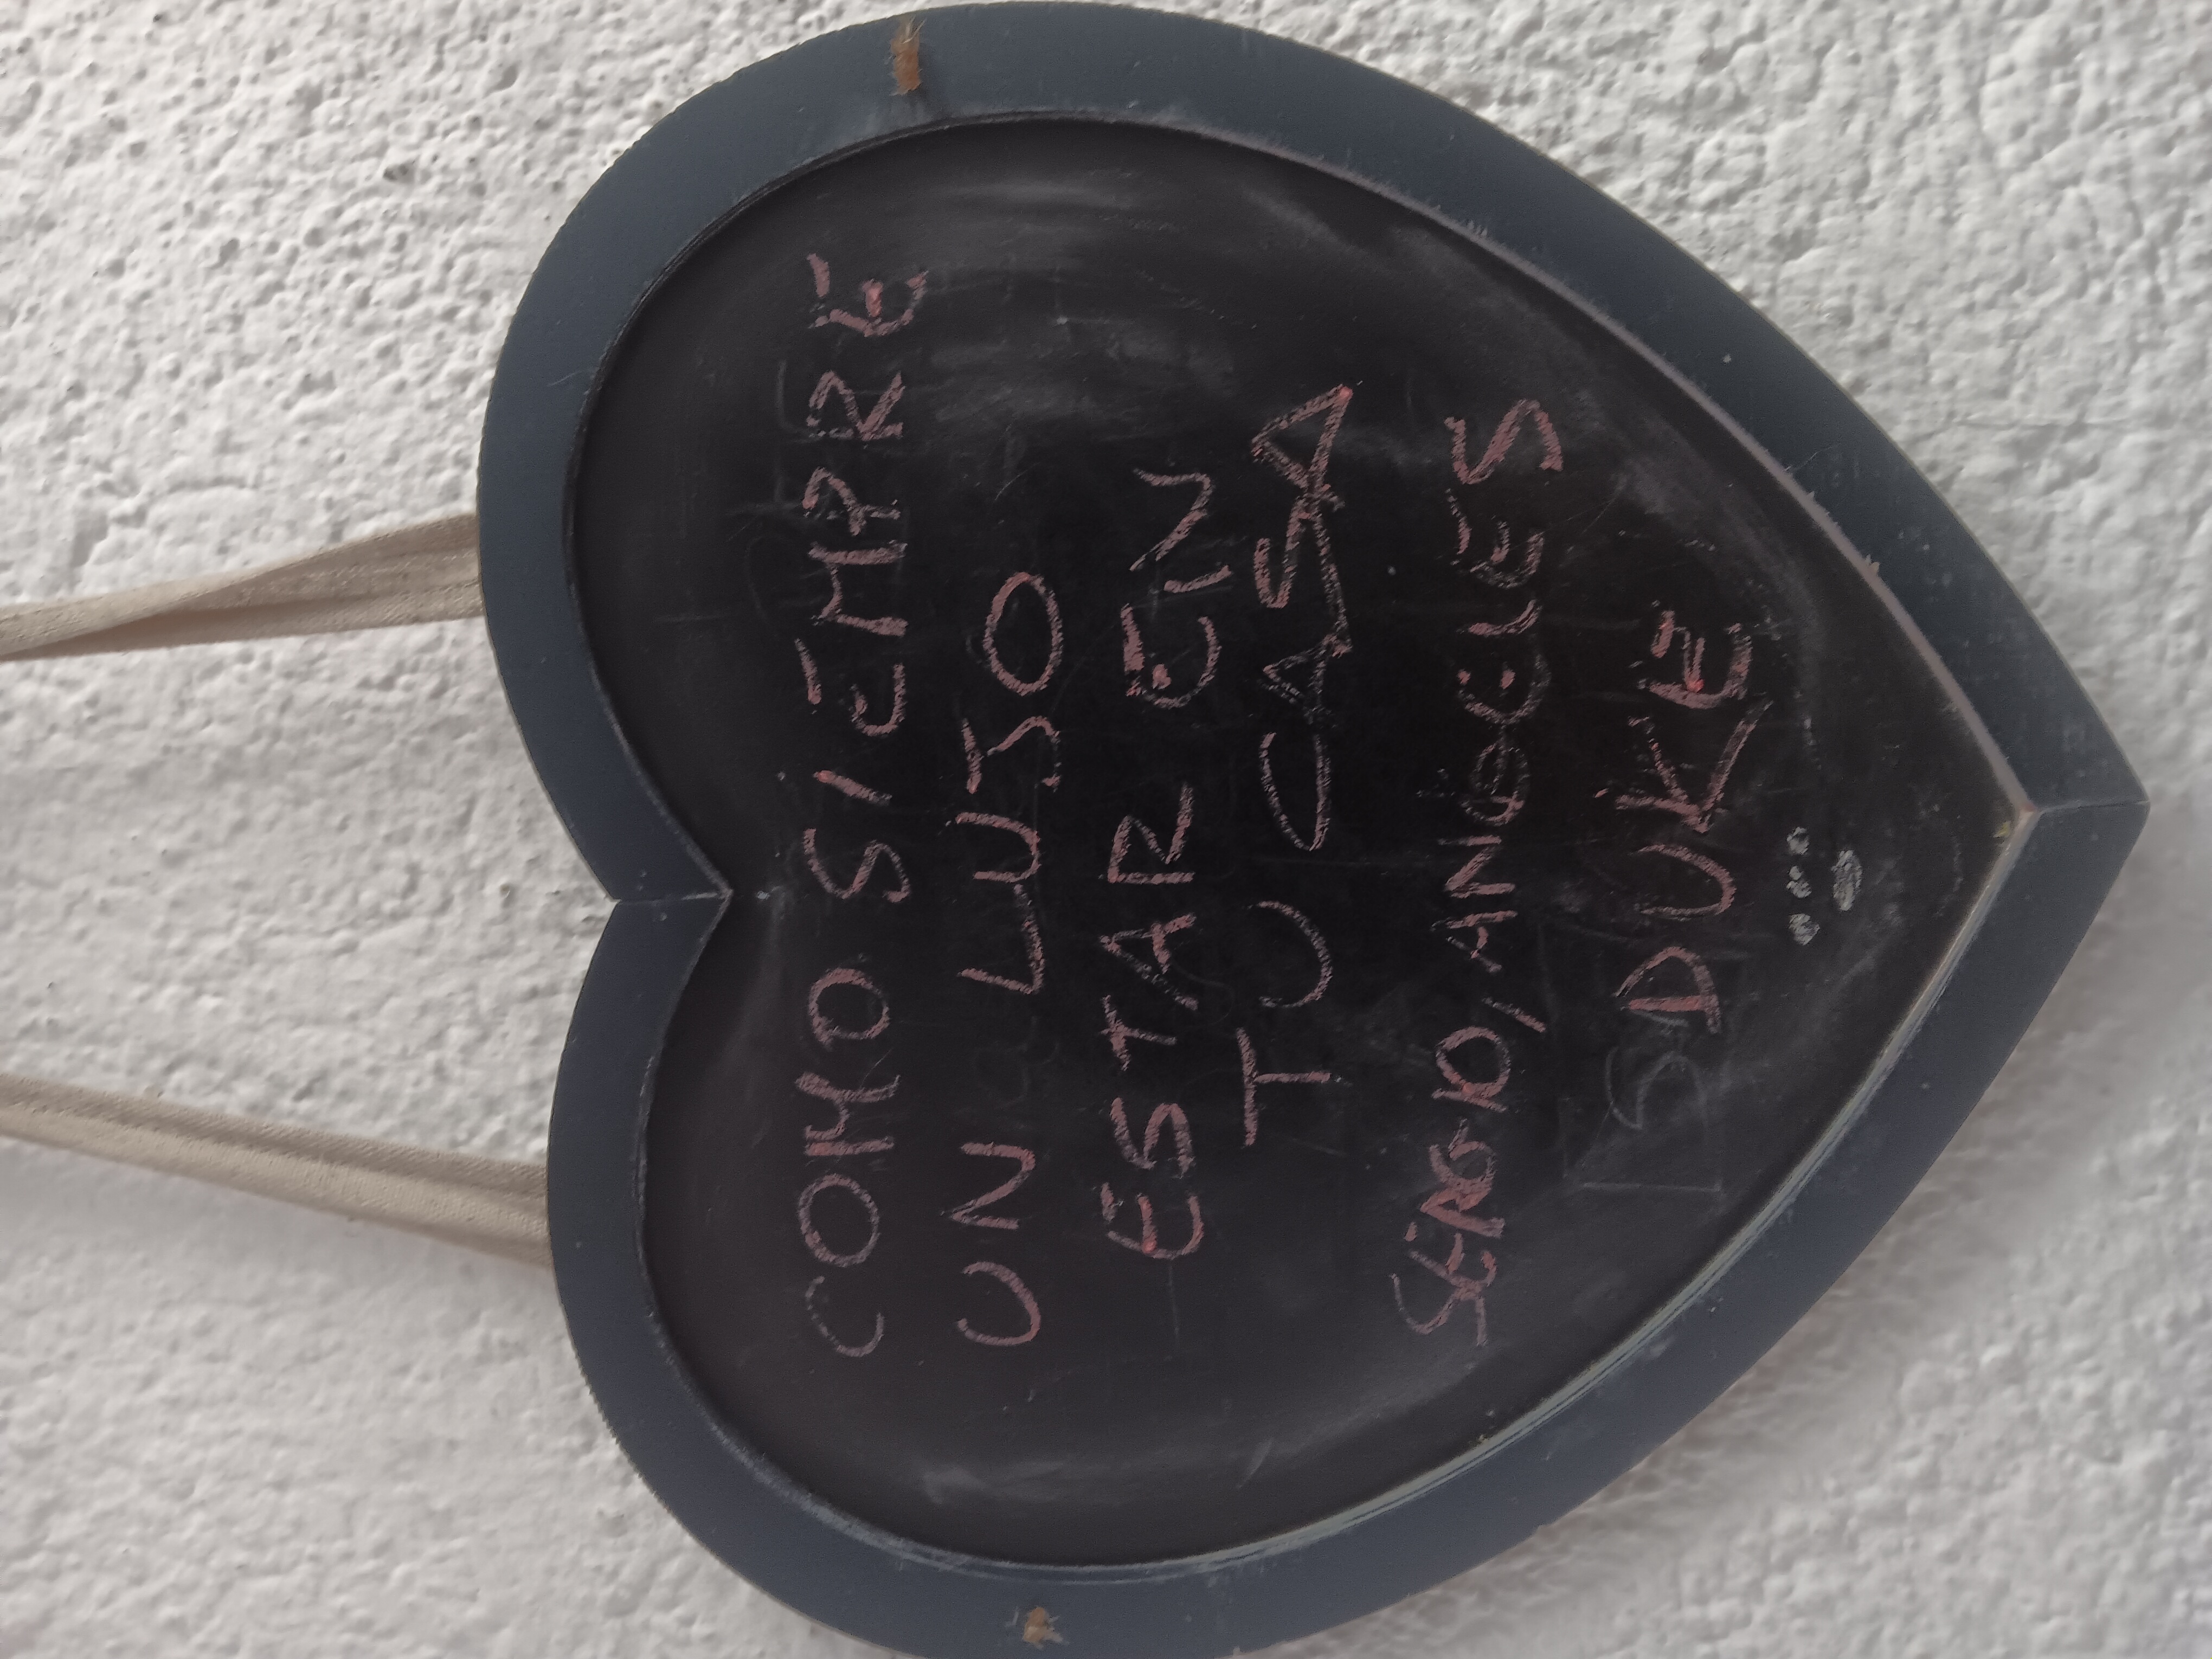 COMO SIEMPRE
UN LUJO
ESTAR EN
TU CASA
SERGIO/ANGELES
DUKE